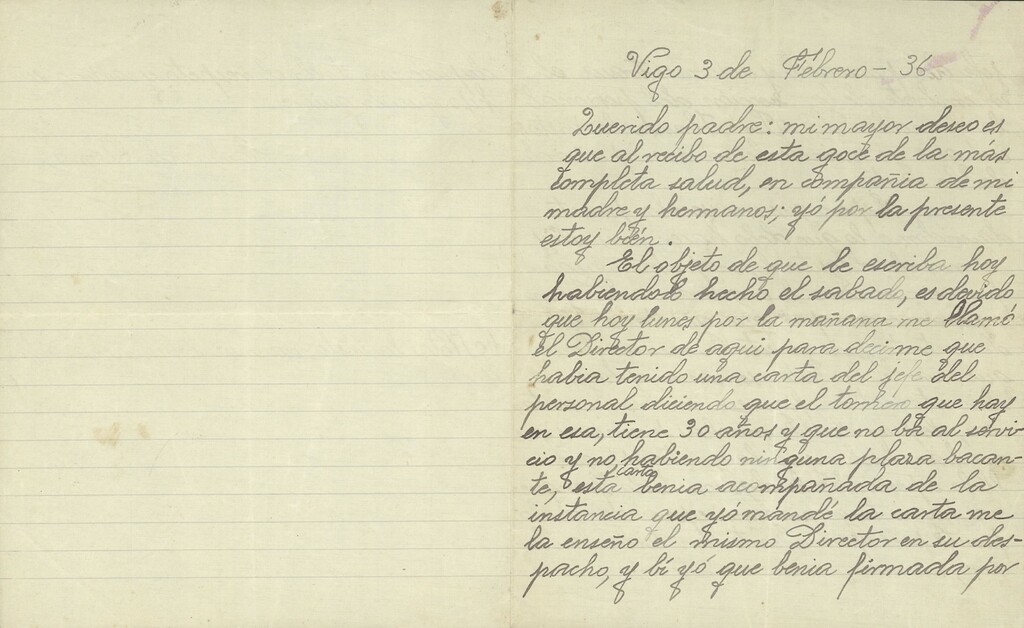 Vigo 3 de Febrero - 36
Querido padre: mi mayor deseo es
que al recibo de esta goce de la más
completa salud, en compañia de mi
madre y hermanos; yó por la presente
estoy bién.
El objeto de que le escriba hoy
habiendolo hecho el sabado, es devido
que hoy lunes por la mañana me llamó
el Director de aqui para decirme que
habia tenido una carta del jefe del
personal diciendo que el tornéro que hay
en esa, tiene 30 años y que no ba al servi-
cio y no habiendo ninguna plaza bacan-
te, esta carta benia acompañada de la
instancia que yó mandé la carta me
la enseño el mismo Director en su des-
pacho, y bí yó que benia firmada por